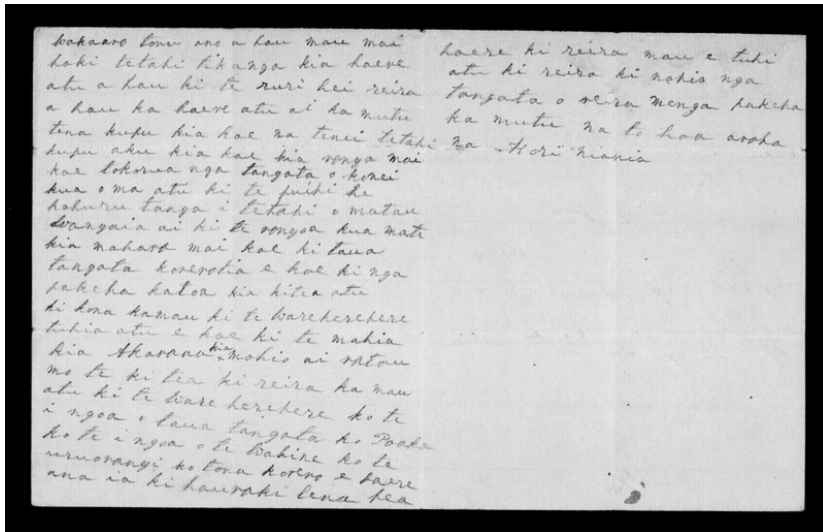 Wakaaro tonu ano a hau mau mai
hoki tetahi tikanga kia haere
atu a hau ki te ruri hei reira
a hau ka haere atu ai ka mutu
tena kupu kia koe na tenei tetahi
kupu aku kia koe kia rongo mai
koe tokorua nga tangata o konei
kua o ma atu ki te puihi he
kohuru tanga i tetahi o matau
Wangaia ai ki te rongoa kua mate
kia mahara mai koe ki taua
tangata korerotia e koe ki nga
pakeha katoa kia kitea atu
ki kona kamau ki te Wareherehere
tuhia atu e koe ki te mahia
kia Akarana kia mohio ai ratau
mo te ki tea ki reira ka mau
atu ki te Ware herehere ko te
i ngoa o taua tangata ko Paaka
ko te i ngoa o te Wahine ko te
uruorangi ko tona korero e haere
ana ia ki hauraki tena pea
haere ki reira mau e tuhi
atu ki reira ki mohio nga
tangata o reira menga pakeha
ka mutu na to hoa aroha
na Hori niania